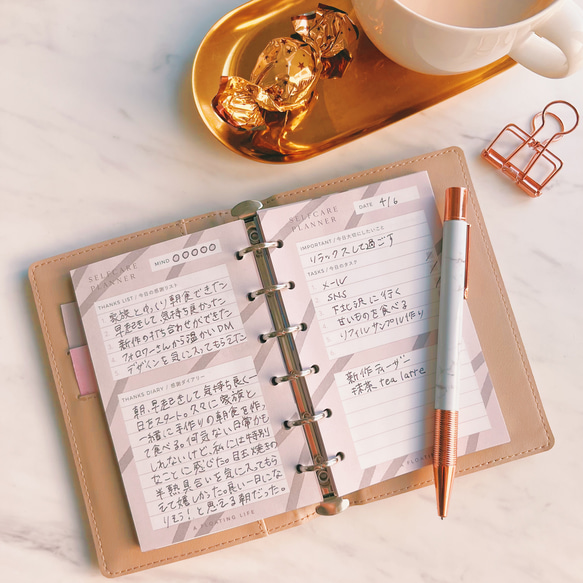 SELFCARE
PLANNER
MIND
THANKS LIST / 今日の感謝リスト
家族とゆっくり朝食できた
早起きして、気持ち良かった
新作の打ち合わせができた
フォロワーさんから温かいDM
デザインを気に入ってもらえた
THANKS DIARY / 感謝ダイアリー
朝、早起きして気持ち良く一
日をスタート。久々に家族と
一緒に手作りの朝食を作っ
て食べる。何気ない日常かも
しれないけど、私には特別
なことに感じた。目玉焼きの
半熟具合を気に入ってもら
えて嬉しかった。良い一日にな
りそう!と思える朝だった。
A FLOATING LIFE
SELFCARE
PLANNER
DATE 4/6
IMPORTANT / 今日大切にしたいこと
リラックスして過ごす
TASKS / 今日のタスク
メール
SNS
下北沢に行く
甘いものを食べる
リフィルサンプル作り
新作ティーザー
抹茶 tea latte
A FLOATING LIFE